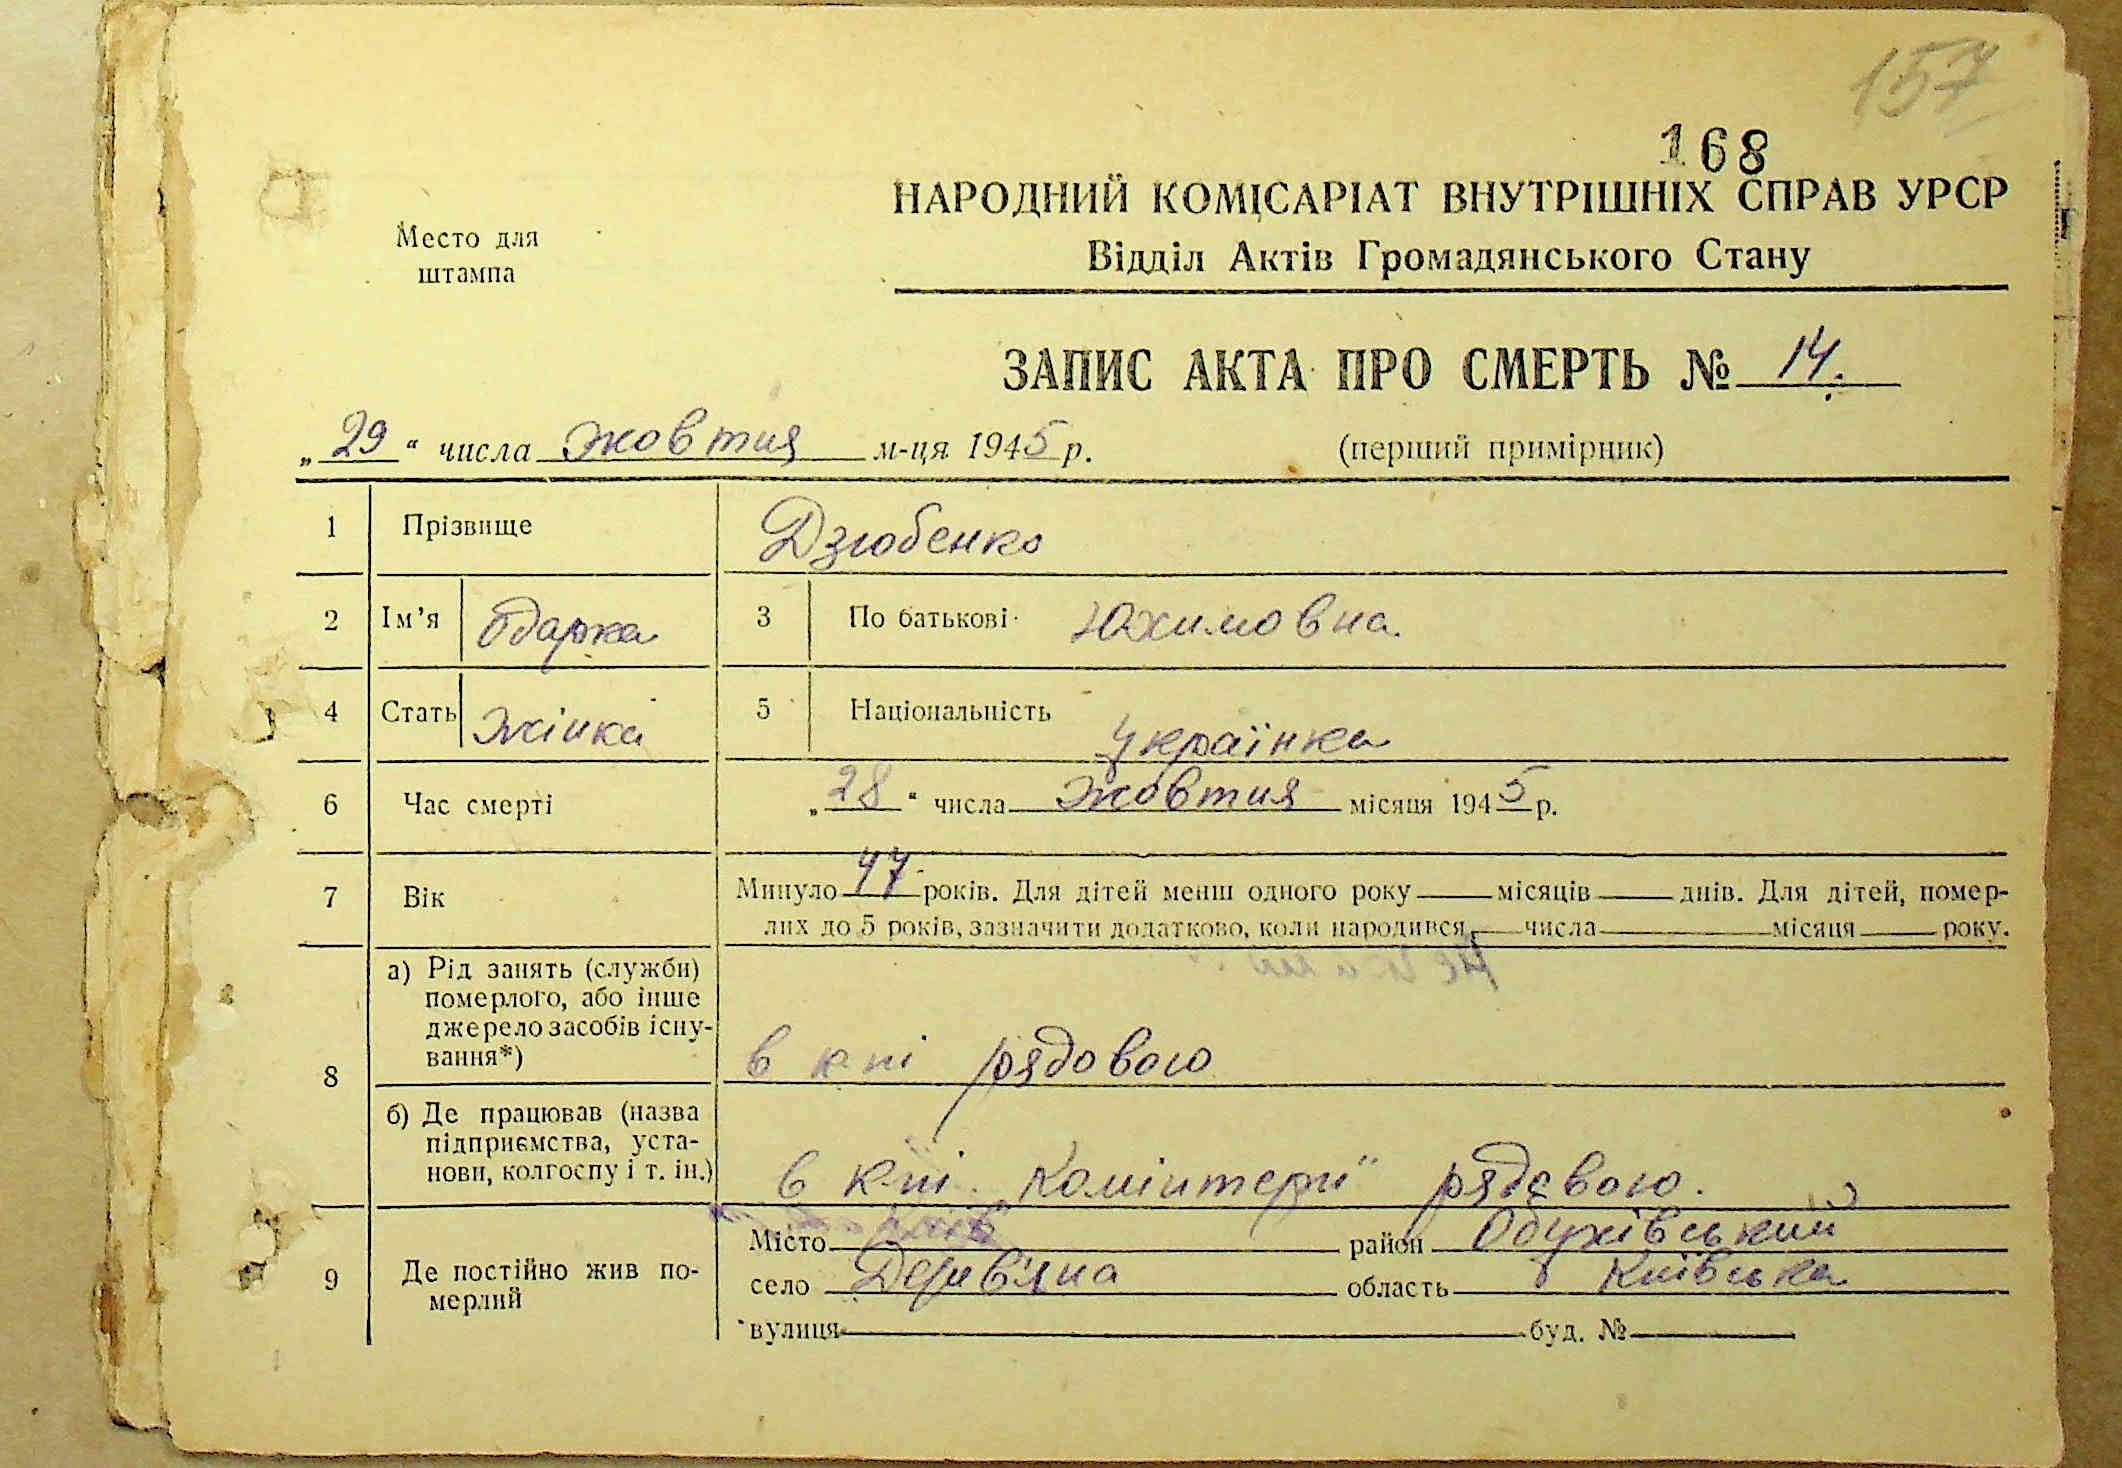 157
168
НАРОДНИЙ КОМІСАРІАТ ВНУТРІШНІХ СПРАВ УРСР
Место для
штампа
Відділ Актів Громадянського Стану
ЗАПИС АКТА ПРО СМЕРТЬ № 14.
„29“ числа жовтня м-ця 1945 р. (перший примірник)
1 Прізвище Дзюбенко
2 Ім’я Одарка 3 По батькові Юхимовна.
4 Стать жінка 5 Національність українка
6 Час смерті „28“ числа жовтня місяця 1945 р.
7 Вік Минуло 47 років. Для дітей менш одного року місяців днів. Для дітей, помер-
лих до 5 років, зазначити додатково, коли народився числа місяця року.
8 а) Рід занять (служби)
померлого, або інше
джерело засобів існу-
вання*) в к-пі рядовою
б) Де працював (назва
підприємства, уста-
нови, колгоспу і т. ін.) в к-пі „Комінтерн“ рядовою.
9 Де постійно жив по-
мерлий
Місто район Обухівський
село Дерев'яна область Київська
вулиця буд. №